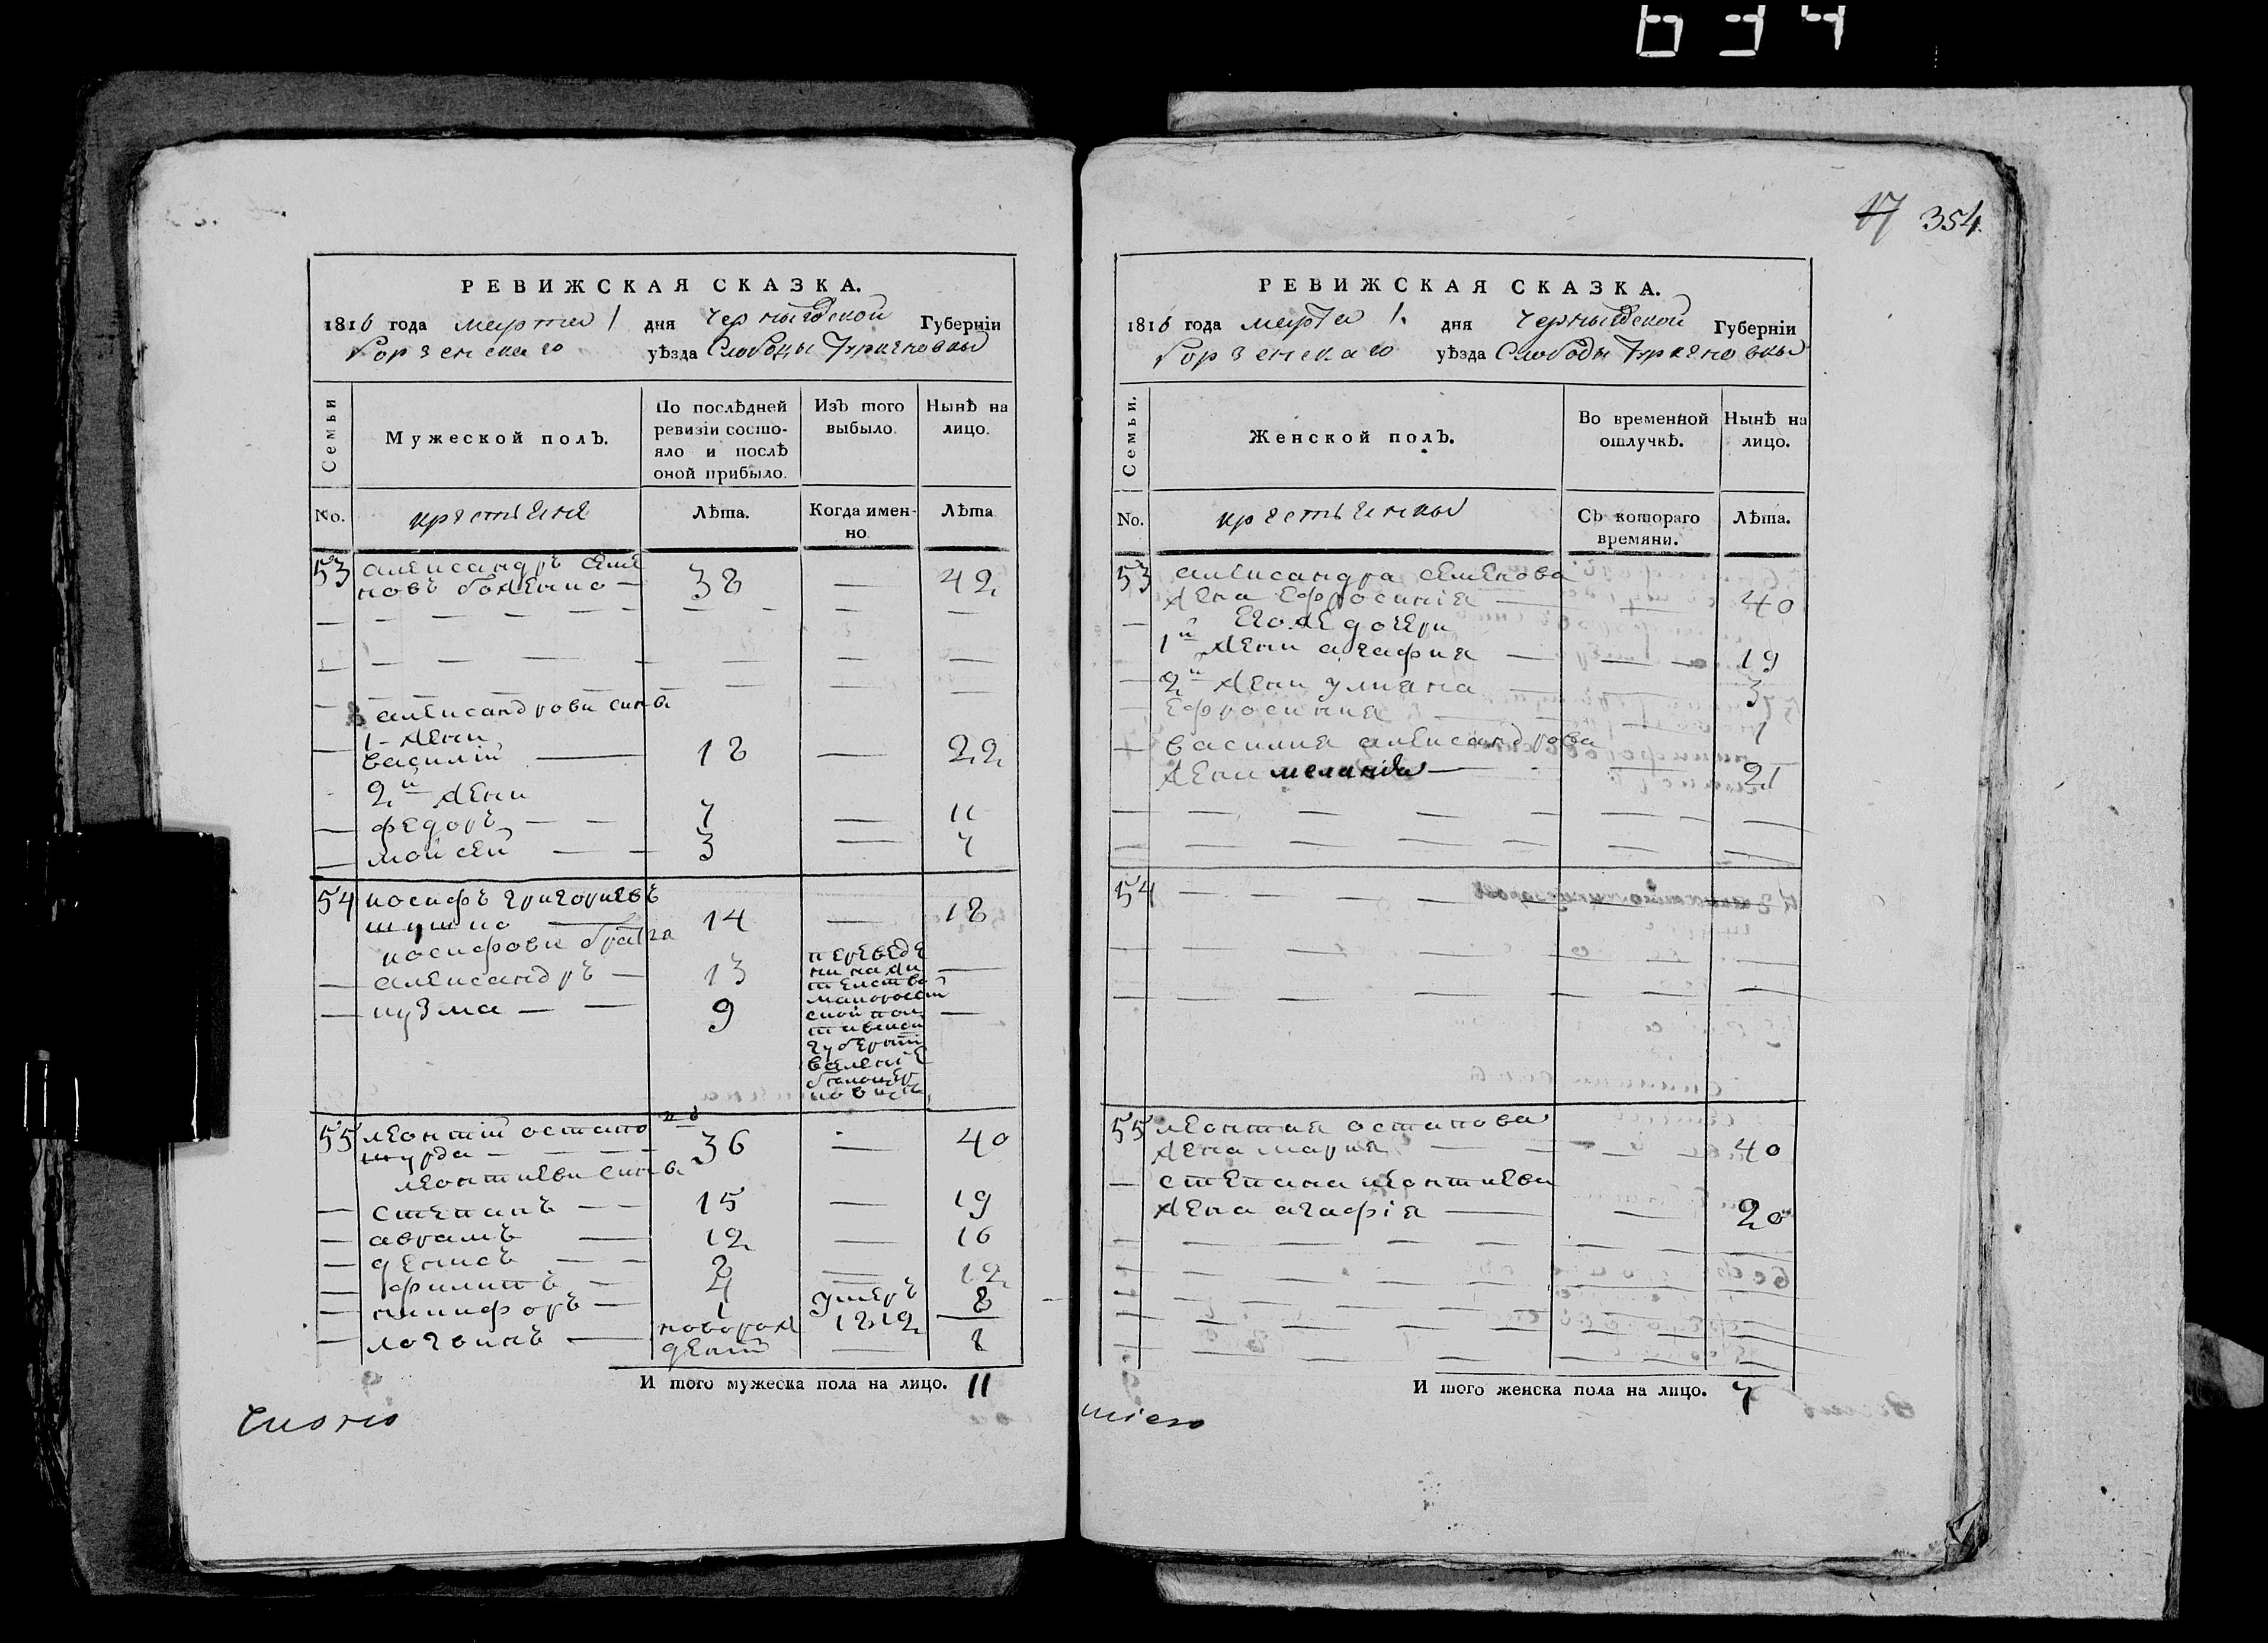 634
РЕВИЖСКАЯ СКАЗКА.
1816 года марта 1 дня Черныговской Губерніи
Борзенскаго уѣзда Слободы
Семьи
Мужеской полъ.
По послѣдней ревизіи состояло и послѣ оной прибыло.
Изъ того выбыло.
Нынѣ на лицо.
No.
крестьяне
Лѣта.
Когда именно
Лѣта
53 александръ семе
новъ боженко — 38 — 42
александрови сини
1- жени
василій — 18 — 22
2й жени
федоръ — — 7 — 11
мойсей — — 3 — 7
54 иосифъ григориевъ
шушко — 14 — 18
иосифови братья
александръ — 13
кузма — — 9
переведе
ни на жи
телство
губерніи
55 леонтій остапо
шурда — — — 36 — 40
леонтиеви сини
степанъ — — 15 — 19
аврамъ — 12 — 16
денисъ — — 8 — 12
филипъ — 4 — 8
никифоръ — 1 умеръ 1812 —
логвинъ — новорож
деній — 1
И того мужеска пола на лицо. 11
17 354
РЕВИЖСКАЯ СКАЗКА.
1816 года марта 1. дня Черныговской Губерніи
Борзенскаго уѣзда Слободы
Семьи.
Женской полъ.
Во временной отлучкѣ.
Нынѣ на лицо.
No.
крестьянкы
Съ котораго времяни.
Лѣта.
53 александра семенова
жена ефросинія — — 40
его же дочери
1й жени агафия — — 19
2й жени улияна — 3
ефросиния — 1
василия александрова
жена меланія — — 21
54
55 леонтия остапова
жена мария — — 40
степана леонтиева
жена агафія — — 20
И того женска пола на лицо. 7